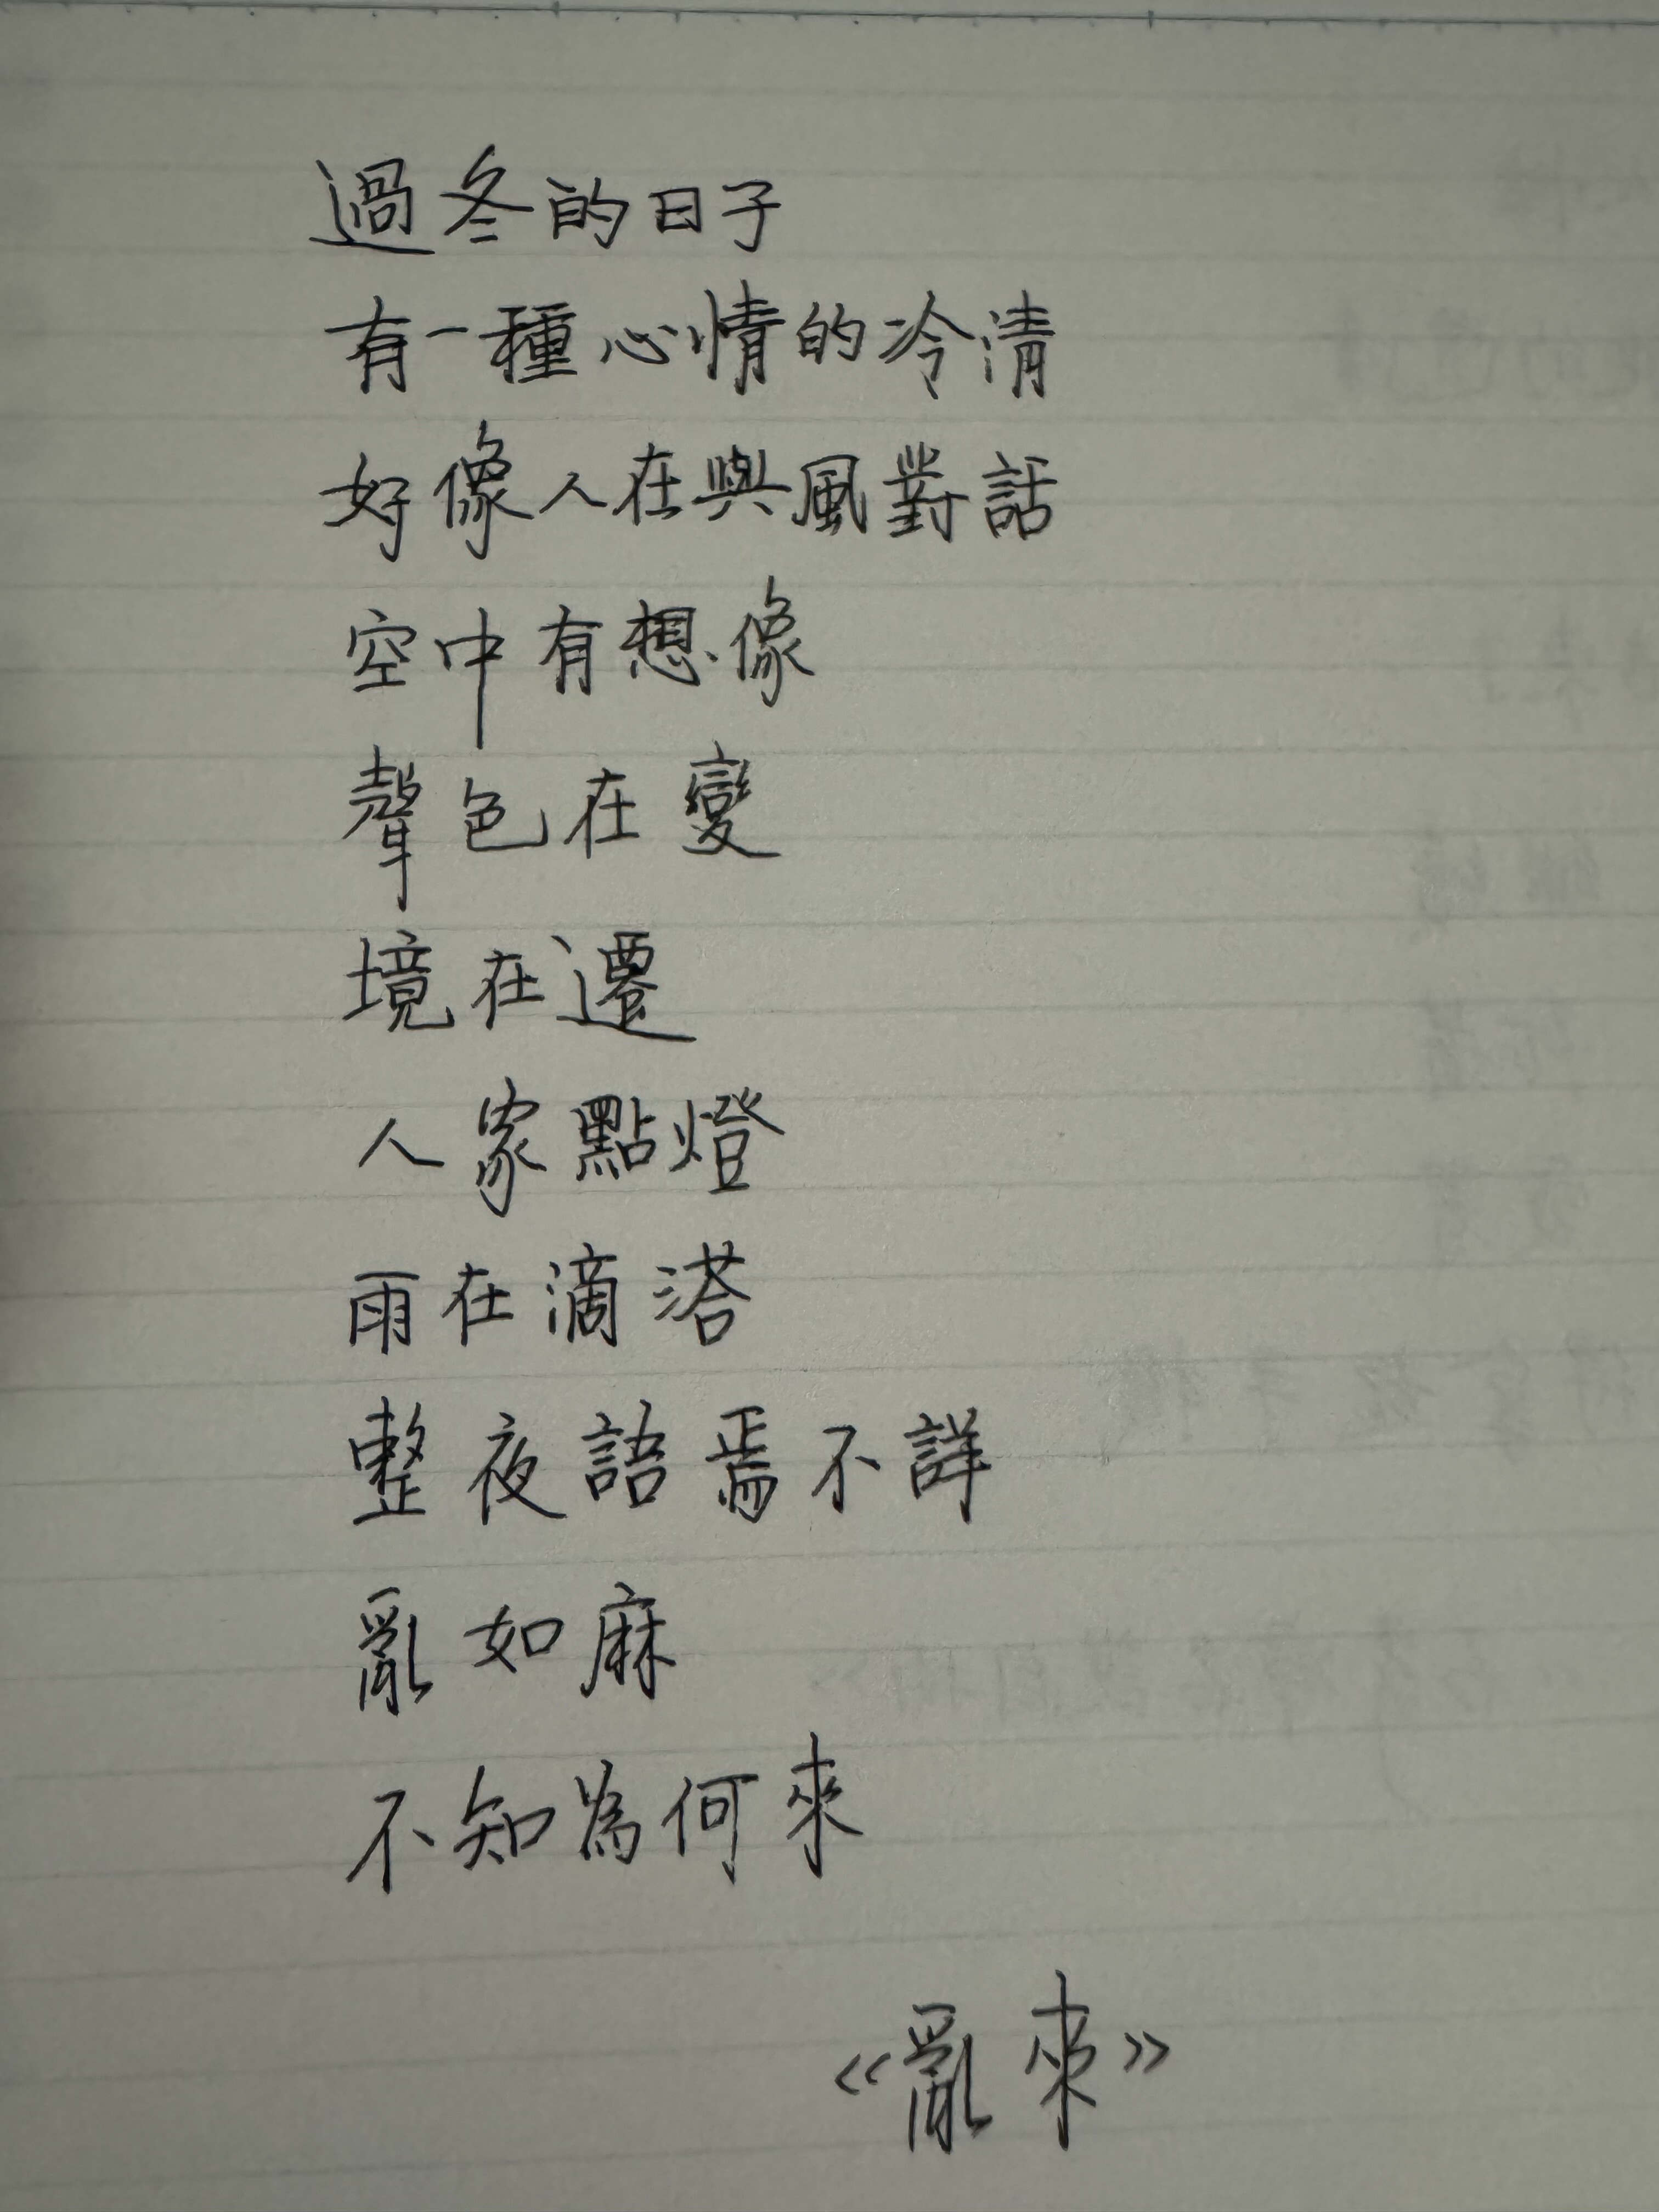 過冬的日子
有一種心情的冷清
好像人在與風對話
空中有想像
聲色在變
境在遷
人家點燈
雨在滴溚
整夜語焉不詳
亂如麻
不知為何來
《亂來》